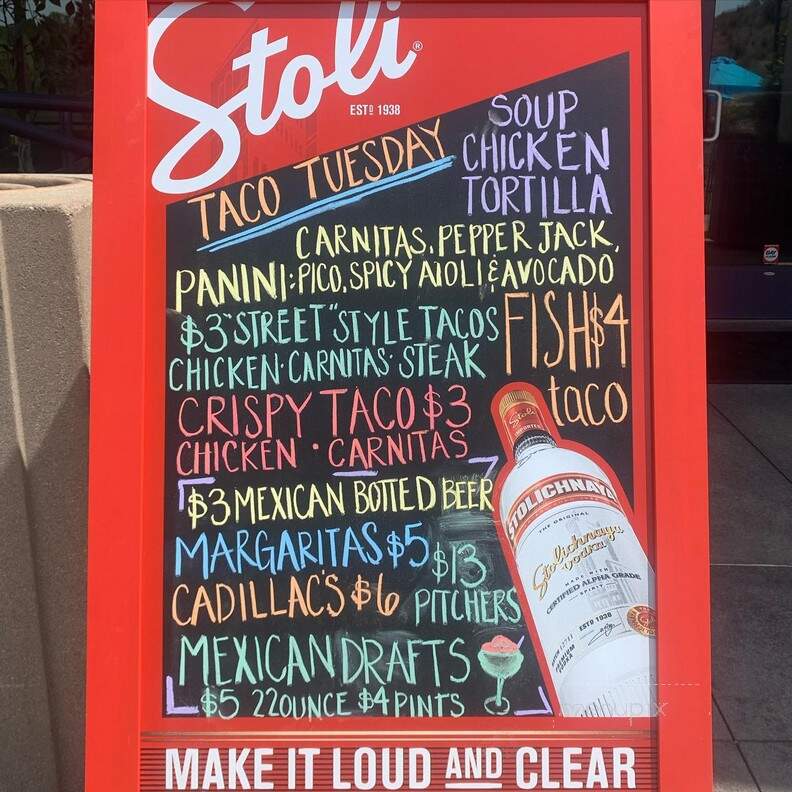 Stoli®
ESTD 1938
TACO TUESDAY
SOUP
CHICKEN
TORTILLA
CARNITAS, PEPPER JACK,
PANINI: PICO, SPICY AIOLI & AVOCADO
$3 "STREET" STYLE TACOS
CHICKEN · CARNITAS · STEAK
FISH $4
taco
CRISPY TACO $3
CHICKEN · CARNITAS
$3 MEXICAN BOTTED BEER
MARGARITAS $5
CADILLAC'S $6
$13
PITCHERS
MEXICAN DRAFTS
$5 22OUNCE $4 PINTS
Stoli
STOLICHNAYA
THE ORIGINAL
Stolichnaya
vodka
MADE WITH
CERTIFIED ALPHA GRADE
SPIRIT
ESTD 1938
PREMIUM
VODKA
MAKE IT LOUD AND CLEAR